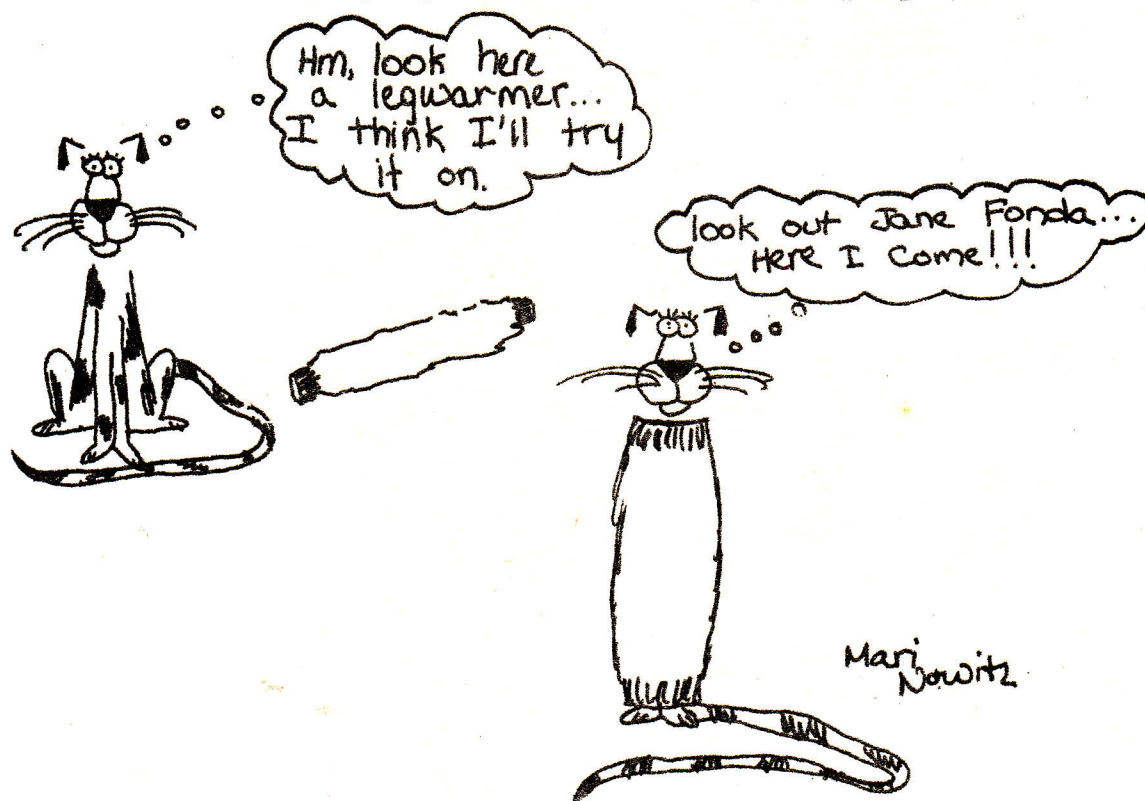 Hm, look here
a legwarmer...
I think I'll try
it on.
look out Jane Fonda...
Here I come!!!
Mari
Nowitz